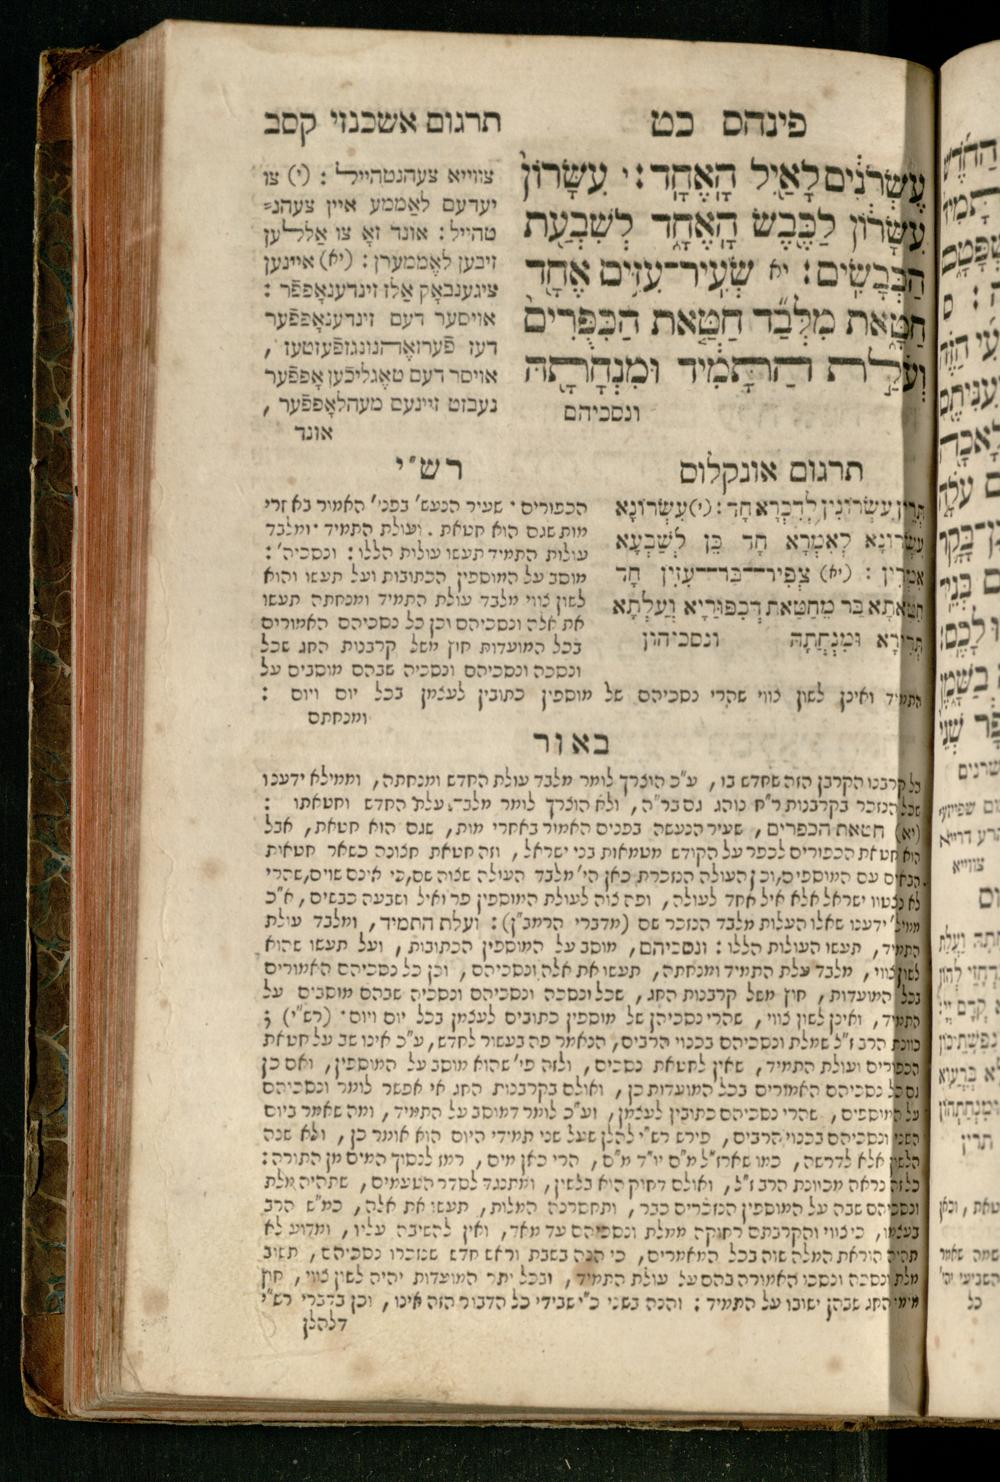 פינחס כט
תרגום אשכנזי קסב
עֶשְׂרֹנִים לָאַיִל הָאֶחָד : י עִשָּׂרוֹן
עִשָּׂרוֹן לַכֶּבֶשׂ הָאֶחָד לְשִׁבְעַת
הַכְּבָשִׂים : יא שְׂעִיר־עִזִּים אֶחָד
חַטָּאת מִלְּבַד חַטַּאת הַכִּפֻּרִים
וְעֹלַת הַתָּמִיד וּמִנְחָתָהּ
ונסכיהם
צווייא צעהנטהייל : (י) צו
יעדעם לאַממע איין צעהנ=
טהייל : אונד זאָ צו אַללען
זיבען לאֶממערן : (יא) איינען
ציגענבאָק אַלז זינדענאָפּפֿר :
אויסער דעם זינדענאָפּפֿער
דעז פֿערזאֶהנונגזפֿעזטעז ,
אויסר דעם טאֶגליכֿען אָפּפֿער
נעבזט זיינעם מעהלאָפּפֿער ,
אונד
תרגום אונקלוס
תְּרֵין עִשְׂרוֹנִין לְדִכְרָא חָד : (י) עִשְׂרוֹנָא
עִשְׂרוֹנָא לְאִמְּרָא חָד כֵּן לְשִׁבְעָא
אִמְּרִין : (יא) צְפִיר־בַּר־עִזִּין חָד
חַטָּאתָא בַּר מֵחַטַּאת דְּכִפּוּרַיָּא וַעֲלָתָא
תְּדִירָא וּמִנְחֲתַהּ ונסכיהון
רש״י
הכפורים · שעיר הנעש׳ בפני׳ האמור באחרי
מות שגם הוא חטאת . ועולת התמיד · ומלבד
עולת התמיד תעשו עולות הללו : ונסכיה׳ :
מוסב על המוספין הכתובות ועל תעשו והוא
לשון צווי מלבד עולת התמיד ומנחתה תעשו
את אלה ונסכיהם וכן כל נסכיהם האמורים
בכל המועדות חוץ משל קרבנות החג שכל
ונסכה ונסכיהם ונסכיה שבהם מוסבים על
התמיד ואינן לשון צווי שהרי נסכיהם של מוספין כתובין לעצמן בכל יום ויום :
ומנחתם
באור
כל קרבנו הקרבן הזה שחדש בו , ע״כ הוצרך לומר מלבד עולת החדש ומנחתה , וממילא ידענו
שכל הנזכר בקרבנות ר״ח נוהג גם בר״ה , ולא הוצרך לומר מלבד עלת החדש וחטאתו :
(יא) חטאת הכפרים , שעיר הנעשה בפנים האמור באחרי מות , שגם הוא חטאת , אבל
הוא חטאת הכפורים לכפר על הקודש מטמאות בני ישראל , וזה חטאת חצונה כשאר חטאות
הבאים עם המוספים , וכן העולה הנזכרת כאן הי׳ מלבד העולה שצוה שם , כי אינם שוים , שהרי
לא נצטוו ישראל אלא איל אחד לעולה , ופה צוה לעולת המוספין פר ואיל ושבעה כבשים , א״כ
ממיל׳ ידענו שאלו העולות מלבד הנזכר שם (מדברי הרמב״ן) : ועלת התמיד , ומלבד עולת
התמיד , תעשו העולות הללו : ונסכיהם , מוסב על המוספין הכתובות , ועל תעשו שהוא
לשון צווי , מלבד עלת התמיד ומנחתה , תעשו את אלה ונסכיהם , וכן כל נסכיהם האמורים
בכל המועדות , חוץ משל קרבנות החג , שכל ונסכה ונסכיהם ונסכיה שבהם מוסבים על
התמיד , ואינן לשון צווי , שהרי נסכיהן של מוספין כתובים לעצמן בכל יום ויום · (רש״י) ;
כוונת הרב ז״ל שמלת ונסכיהם בכנוי הרבים , הנאמר פה בעשור לחדש , ע״כ אינו שב על חטאת
הכפורים ועולת התמיד , שאין לחטאת נסכים , ולזה פי׳ שהוא מוסב על המוספין , ואם כן
גם כל נסכיהם האמורים בכל המועדות כן , ואולם בקרבנות החג אי אפשר לומר ונסכיהם
על המוספים , שהרי נסכיהם כתובין לעצמן , וע״כ לומר דמוסב על התמיד , ומה שאמר ביום
השני ונסכיהם בכנוי הרבים , פירש רש״י להלן שעל שני תמידי היום הוא אומר כן , ולא שנה
הלשון אלא לדרשה , כמו שארז״ל מ״ם יו״ד מ״ם , הרי כאן מים , רמז לנסוך המים מן התורה :
כל זה נראה מכוונת הרב ז״ל , ואולם דחוק היא בלשון , ומתנגד לסדר הטעמים , שתהיה מלת
ונסכיהם שבה על המוספין הנזכרים כבר , ותחסרנה המלות , תעשו את אלה , כמ״ש הרב
בעצמו , כי צווי והקרבתם רחוקה ממלת ונסכיהם עד מאד , ואין להשיבה עליו , ומדוע לא
תהיה הוראת המלה שוה בכל המאמרים , כי הנה בשבת וראש חדש שנזכרו נסכיהם , תשוב
מלת ונסכה ונסכו האמורה בהם על עולת התמיד , ובכל יתר המועדות יהיה לשון צווי , חוץ
מימי החג שבהן ישובו על התמיד : והנה בשני כ״י שבידי כל הדבור הזה אינו , וכן בדברי רש״י
דלהלן